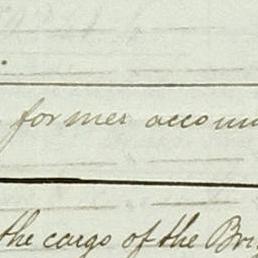 former accou
the cargo of the Bri